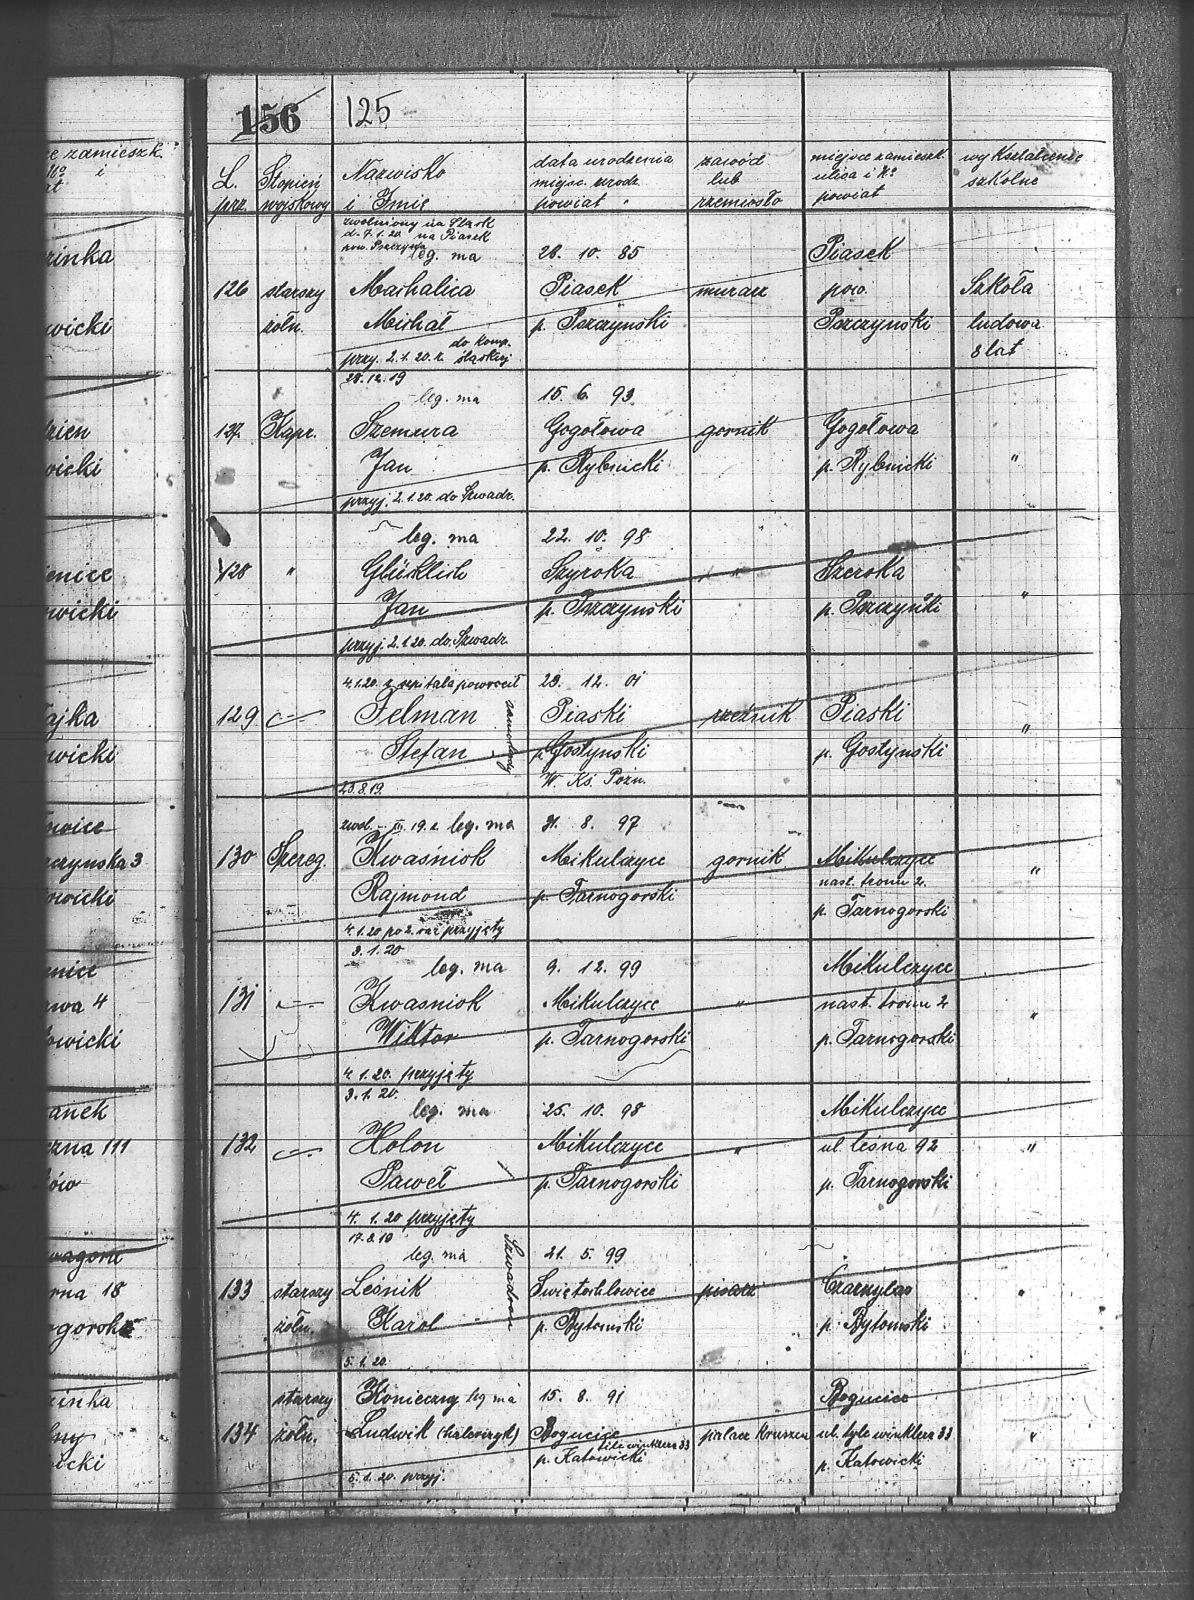 e zamieszk.
No i
at
zinka
wicki
zien
wicki
enice
wicki
ajka
wicki
owice
czynska 3
wicki
nice
wa 4
owicki
anek
zna 111
ów
wagora
rna 18
ogorski
zinka
cki
156 125
L. prz.
Stopień wojskowy
Nazwisko i Imię
data urodzenia miejsc. urodz. powiat
zawód lub rzemiosło
miejsce zamieszk. ulica i No powiat
wykształcenie szkolne
zwolniony na Śląsk
d. 7.1.20 na Piasek
pow. Pszczyna
leg. ma 28. 10. 85 Piasek
126 starszy Machalica Piasek murarz pow. Szkoła
żołn. Michał p. Pszczyński Pszczynski ludowa
do komp. 8 lat
przy. 2.1.20. r. śląskiej
28.12.19
leg. ma 15. 6. 93
127 Kapr. Szemura Gogołowa gornik Gogołowa
Jan p. Rybnicki p. Rybnicki "
przyj. 2.1.20. do Szwadr.
leg. ma 22. 10. 98
128 " Glücklich Szyroka " Szeroka
Jan p. Pszczynski p. Pszczyński "
przyj. 2.1.20. do Szwadr.
4.1.20. z szpitala powrócił 23. 12. 01
129 Felman Piaski rzeźnik Piaski
Stefan p. Gostynski p. Gostynski "
23.8.19. W. Ks. Pozn.
zwol. - III. 19. r. leg. ma 31. 8. 97
130 Szereg. Kwaśniok Mikulczyce gornik Mikulczyce "
nast. tronu 2.
Rajmond p. Tarnogorski p. Tarnogorski
4.1.20 po 2. raz przyjęty
3.1.20
leg. ma 9. 12. 99 Mikulczyce
131 Kwasniok Mikulczyce " nast. tronu 2
Wiktor p. Tarnogorski p. Tarnogorski "
4.1.20. przyjęty
3.1.20.
leg. ma 25. 10. 98 Mikulczyce
132 Holon Mikulczyce " ul. leśna 92 "
Paweł p. Tarnogorski p. Tarnogorski
4. 1.20 przyjęty
17.8.19
leg. ma 21. 5. 99
Szwadron
133 starszy Leśnik Świętochlowice pisarz Czarnylas
żołn. Karol p. Bytomski p. Bytomski
5.1.20.
starszy Konieczny leg ma 15. 8. 91 Bogucice
134 żołn. Ludwik Bogucice palacz Kruszcu ul. tyle winklera 33 "
tile winklera 33
p. Katowicki p. Katowicki
5.1.20. przyj.